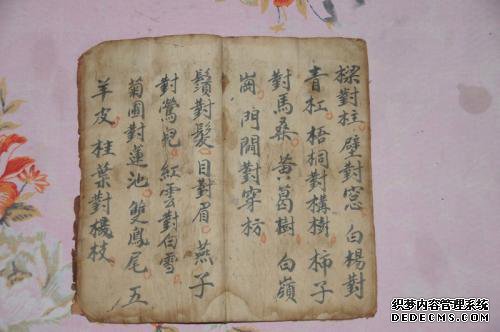 樑對柱 壁對窓 白楊對
青杠 梧桐對構樹 柿子
對馬桑 黄葛樹 白嶺
崗 門閫對穿枋
鬚對髮 目對眉 燕子
對鶯兒 紅雲對白雪
菊圃對蓮池 雙鳳尾 五
羊皮 桂葉對枝
织梦内容管理系统
DEDECMS.COM